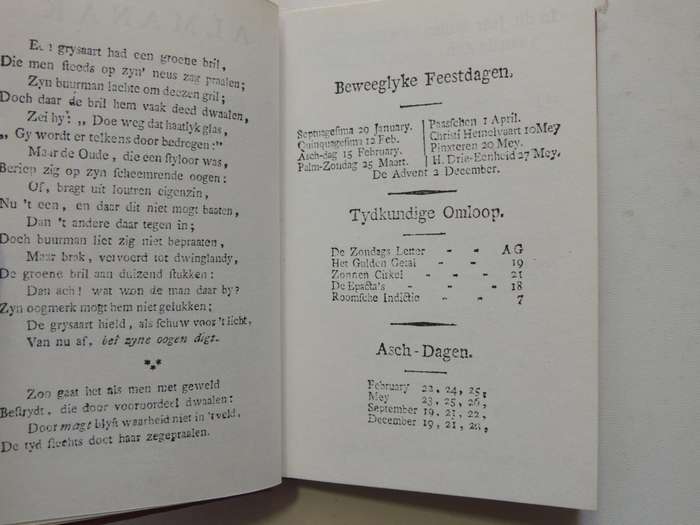 Een grysaart had een groene bril,
Die men steeds op zyn' neus zag praalen;
Zyn buurman lachte om deezen gril;
Doch daar de bril hem vaak deed dwaalen,
Zei hy: „ Doe weg dat haatlyk glas,
„ Gy wordt er telkens door bedrogen:"
Maar de Oude, die een styloor was,
Beriep zig op zyn scheemrende oogen:
Of, bragt uit loutren eigenzin,
Nu 't een, en daar dit niet mogt baaten,
Dan 't andere daar tegen in;
Doch buurman liet zig niet bepraaten,
Maar brak, vervoerd tot dwinglandy,
De groene bril aan duizend stukken:
Dan ach! wat won de man daar by?
Zyn oogmerk mogt hem niet gelukken;
De grysaart hield, als schuw voor 't licht,
Van nu af, bei zyne oogen digt.
***
Zoo gaat het als men met geweld
Beſtrydt, die door vooroordeel dwaalen:
Door magt blyft waarheid niet in 't veld,
De tyd ſlechts doet haar zegepraalen.
Beweeglyke Feestdagen.
Septuageſima 20 January.
Quinquageſima 12 Feb.
Asch-dag 15 February.
Palm-Zondag 25 Maart.
Paaſchen 1 April.
Christi Hemelvaart 10 Mey
Pinxteren 20 Mey.
H. Drie-Eenheid 27 Mey.
De Advent 2 December.
Tydkundige Omloop.
De Zondags Letter - - AG
Het Gulden Getal - - 19
Zonnen Cirkel - - 21
De Epacta's - - 18
Roomſche Indictie - - 7
Asch-Dagen.
February 22, 24, 25,
Mey 23, 25, 26,
September 19, 21, 22,
December 19, 21, 22,